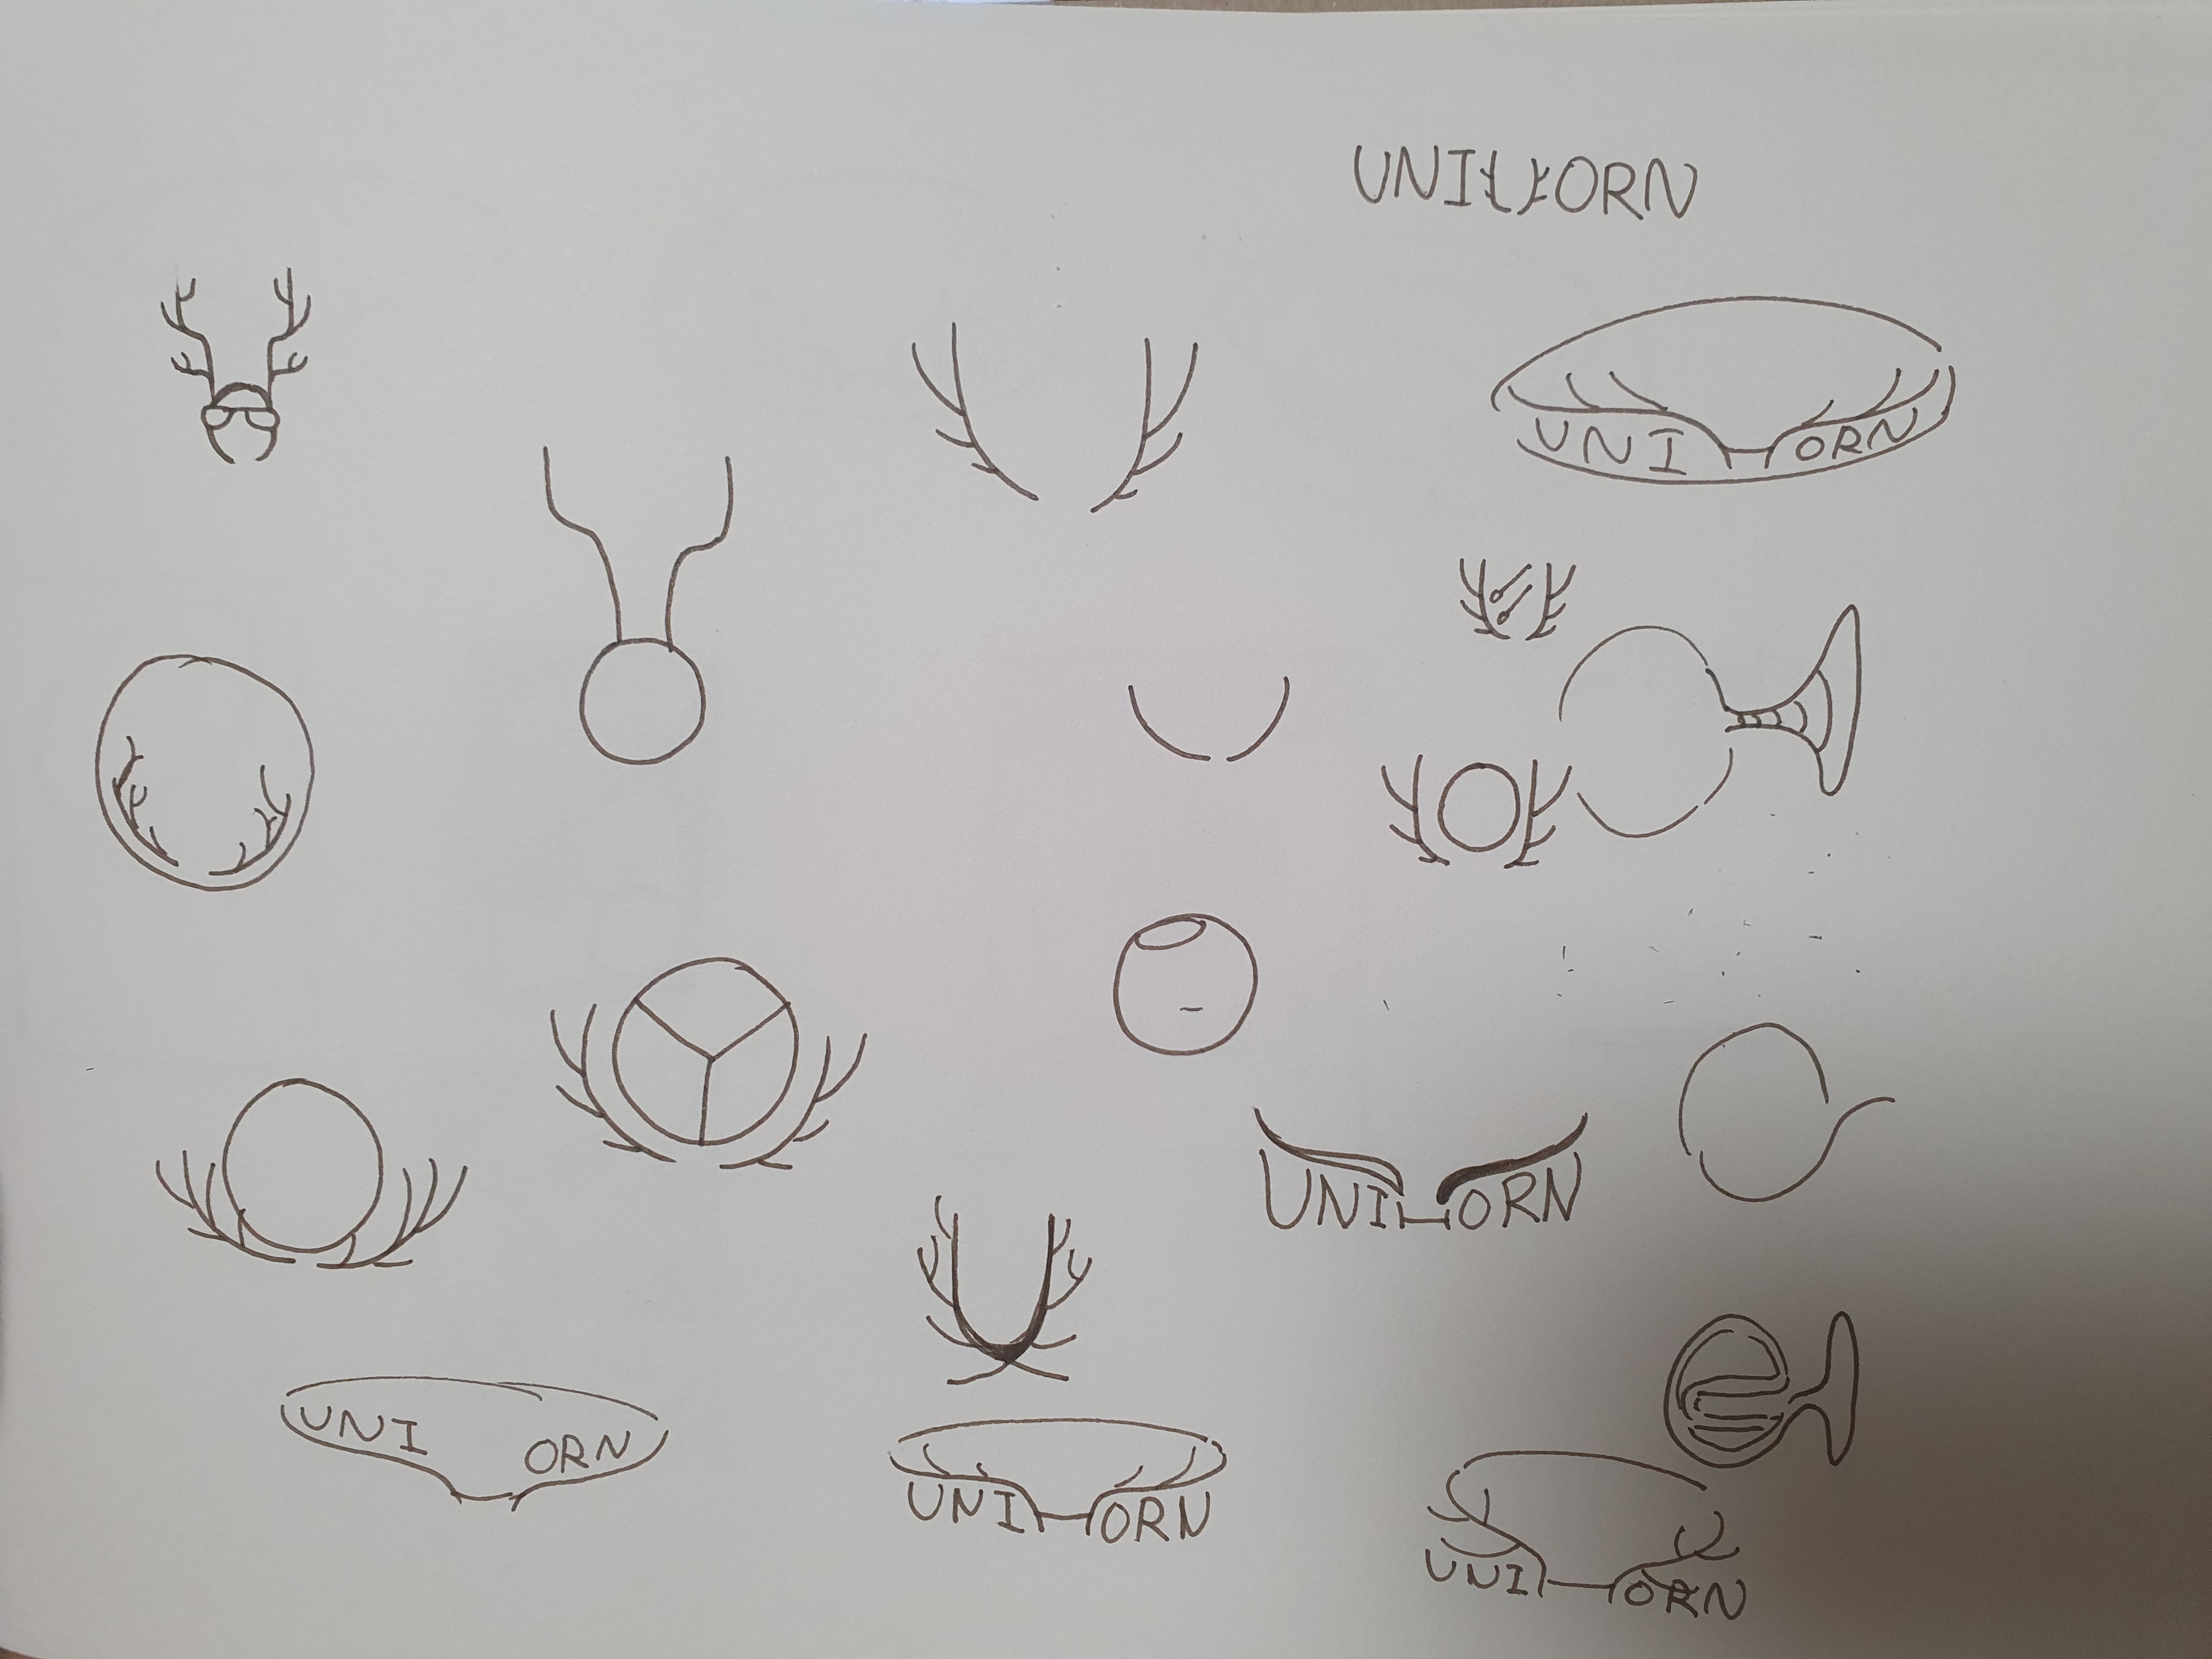 UNI ORN
UNI ORN
UNI ORN
UNI ORN
UNI ORN
UNI ORN